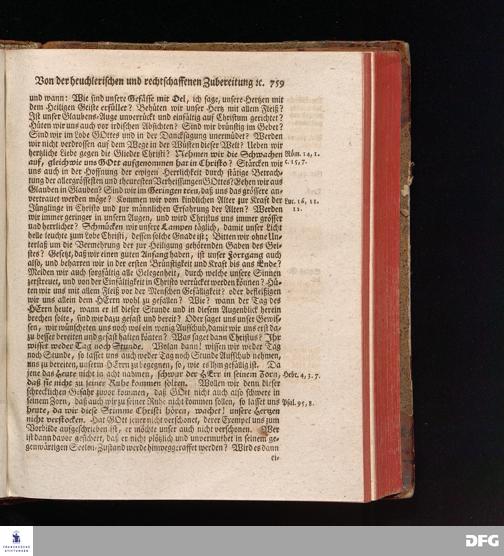 Von der heuchlerischen und rechtschaffenen Zubereitung ꝛc. 759
und wann: Wie sind unsere Gefässe mit Oel, ich sage, unsere Hertzen mit
dem Heiligen Geiste erfüllet? Behüten wir unser Hertz mit allem Fleiß?
Ist unser Glaubens-Auge unverrückt und einfältig auf Christum gerichtet?
Hüten wir uns auch vor irdischen Absichten? Sind wir brünstig im Gebet?
Sind wir im Lobe GOttes und in der Dancksagung unermüdet? Werden
wir nicht verdrossen auf dem Wege in der Wüsten dieser Welt? Ueben wir
hertzliche Liebe gegen die Glieder Christi? Nehmen wir die Schwachen Röm. 14, 1.
auf, gleichwie uns GOtt aufgenommen hat in Christo? Stärcken wir c. 15, 7.
uns auch in der Hoffnung der ewigen Herrlichkeit durch stätige Betrach-
tung der allergrössesten und theuresten Verheissungen GOttes? Gehen wir aus
Glauben in Glauben? Sind wir im Geringen treu, daß uns das grössere an-
vertrauet werden möge? Kommen wir vom kindlichen Alter zur Kraft der Luc. 16, 11.
Jünglinge in Christo und zur männlichen Erfahrung der Alten? Werden 12.
wir immer geringer in unsern Augen, und wird Christus uns immer grösser
und herrlicher? Schmücken wir unsere Lampen täglich, damit unser Licht
helle leuchte zum Lobe Christi, dessen solche Gnade ist; Bitten wir ohne Un-
terlaß um die Vermehrung der zur Heiligung gehörenden Gaben des Gei-
stes? Gesetzt, daß wir einen guten Anfang haben, ist unser Fortgang auch
also, und beharren wir in der ersten Brünstigkeit und Kraft bis ans Ende?
Meiden wir auch sorgfältig alle Gelegenheit, durch welche unsere Sinnen
zerstreuet, und von der Einfältigkeit in Christo verrücket werden können? Hü-
ten wir uns mit allem Fleiß vor der Menschen Gefälligkeit? oder befleißigen
wir uns allein dem HErrn wohl zu gefallen? Wie? wann der Tag des
HErrn heute, wann er in dieser Stunde und in diesem Augenblick herein
brechen solte, sind wir dazu gefaßt und bereit? Oder saget uns unser Gewis-
sen, wir wünscheten uns noch wol ein wenig Aufschub, damit wir uns erst da-
zu besser bereiten und gefast halten könten? Was saget dann Christus? Ihr
wisset weder Tag noch Stunde. Wolan dann! wissen wir weder Tag
noch Stunde, so lasset uns auch weder Tag noch Stunde Aufschub nehmen,
uns zu bereiten, unserm HErrn zu begegnen, so, wie es ihm gefällig ist. Da
jene das Heute nicht in acht nahmen, schwur der HErr in seinem Zorn, Hebr. 4, 3. 7.
daß sie nicht zu seiner Ruhe kommen solten. Wollen wir denn dieser
schrecklichen Gefahr zuvor kommen, daß GOtt nicht auch also schwere in
seinem Zorn, daß auch wir zu seiner Ruhe nicht kommen sollen, so lasset uns Psal. 95, 8.
heute, da wir diese Stimme Christi hören, wachet! unsere Hertzen
nicht verstocken. Hat GOtt jener nicht verschonet, derer Exempel uns zum
Vorbilde aufgeschrieben ist, er möchte unser auch nicht verschonen. Wer
ist dann davor gesichert, daß er nicht plötzlich und unvermuthet in seinem ge-
genwärtigen Seelen-Zustand werde hinweggeraffet werden? Wird es dann
ei-
FRANCKESCHE
STIFTUNGEN
DFG